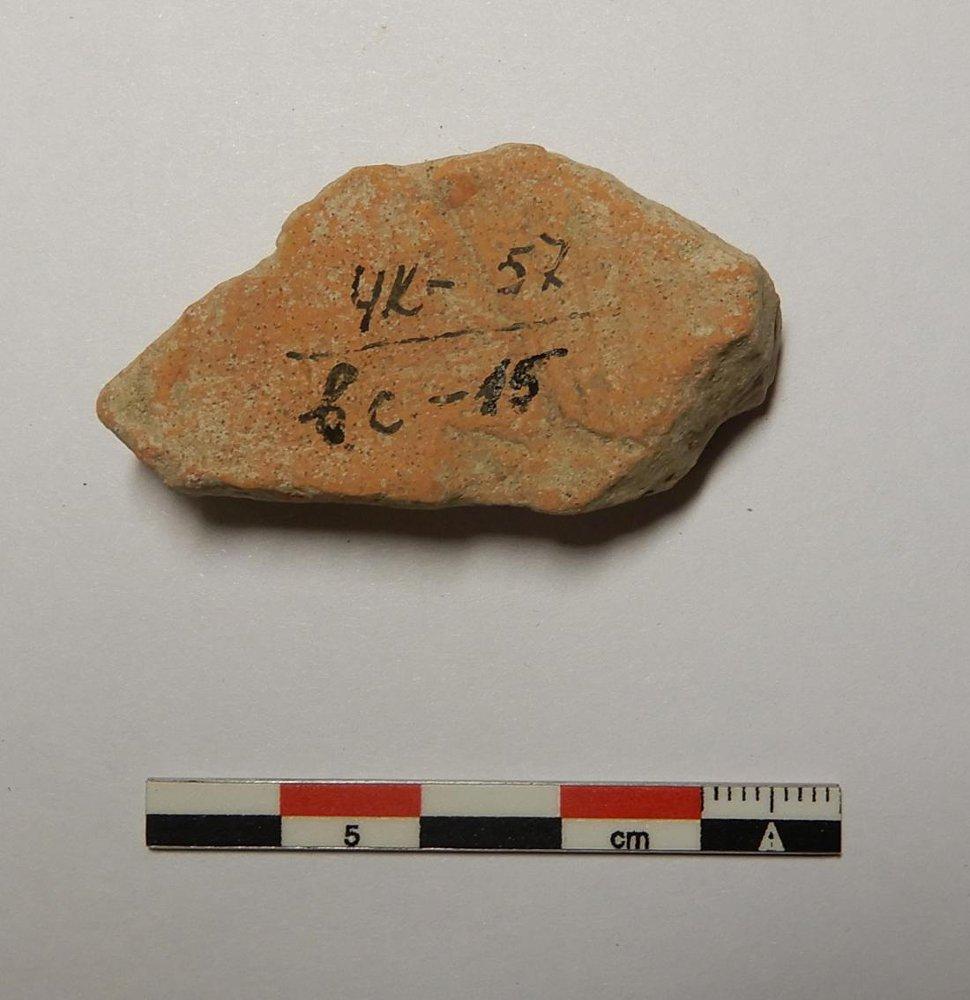 ЧК- 57
вс-15
5 cm A